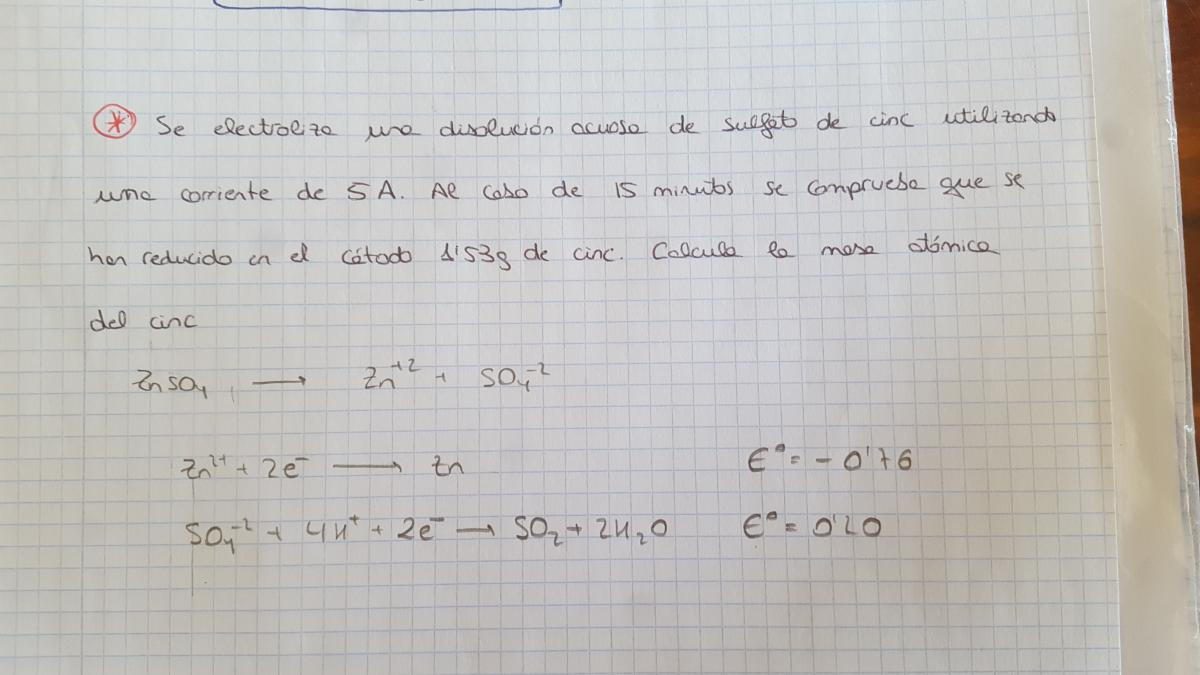 * Se electroliza una disolución acuosa de sulfato de cinc utilizando
una corriente de 5 A. Al cabo de 15 minutos se comprueba que se
han reducido en el cátodo 1'53g de cinc. Calcula la masa atómica
del cinc
ZnSO₄ → Zn⁺² + SO₄⁻²
Zn²⁺ + 2e⁻ → Zn E° = - 0'76
SO₄⁻² + 4H⁺ + 2e⁻ → SO₂ + 2H₂O E° = 0'20